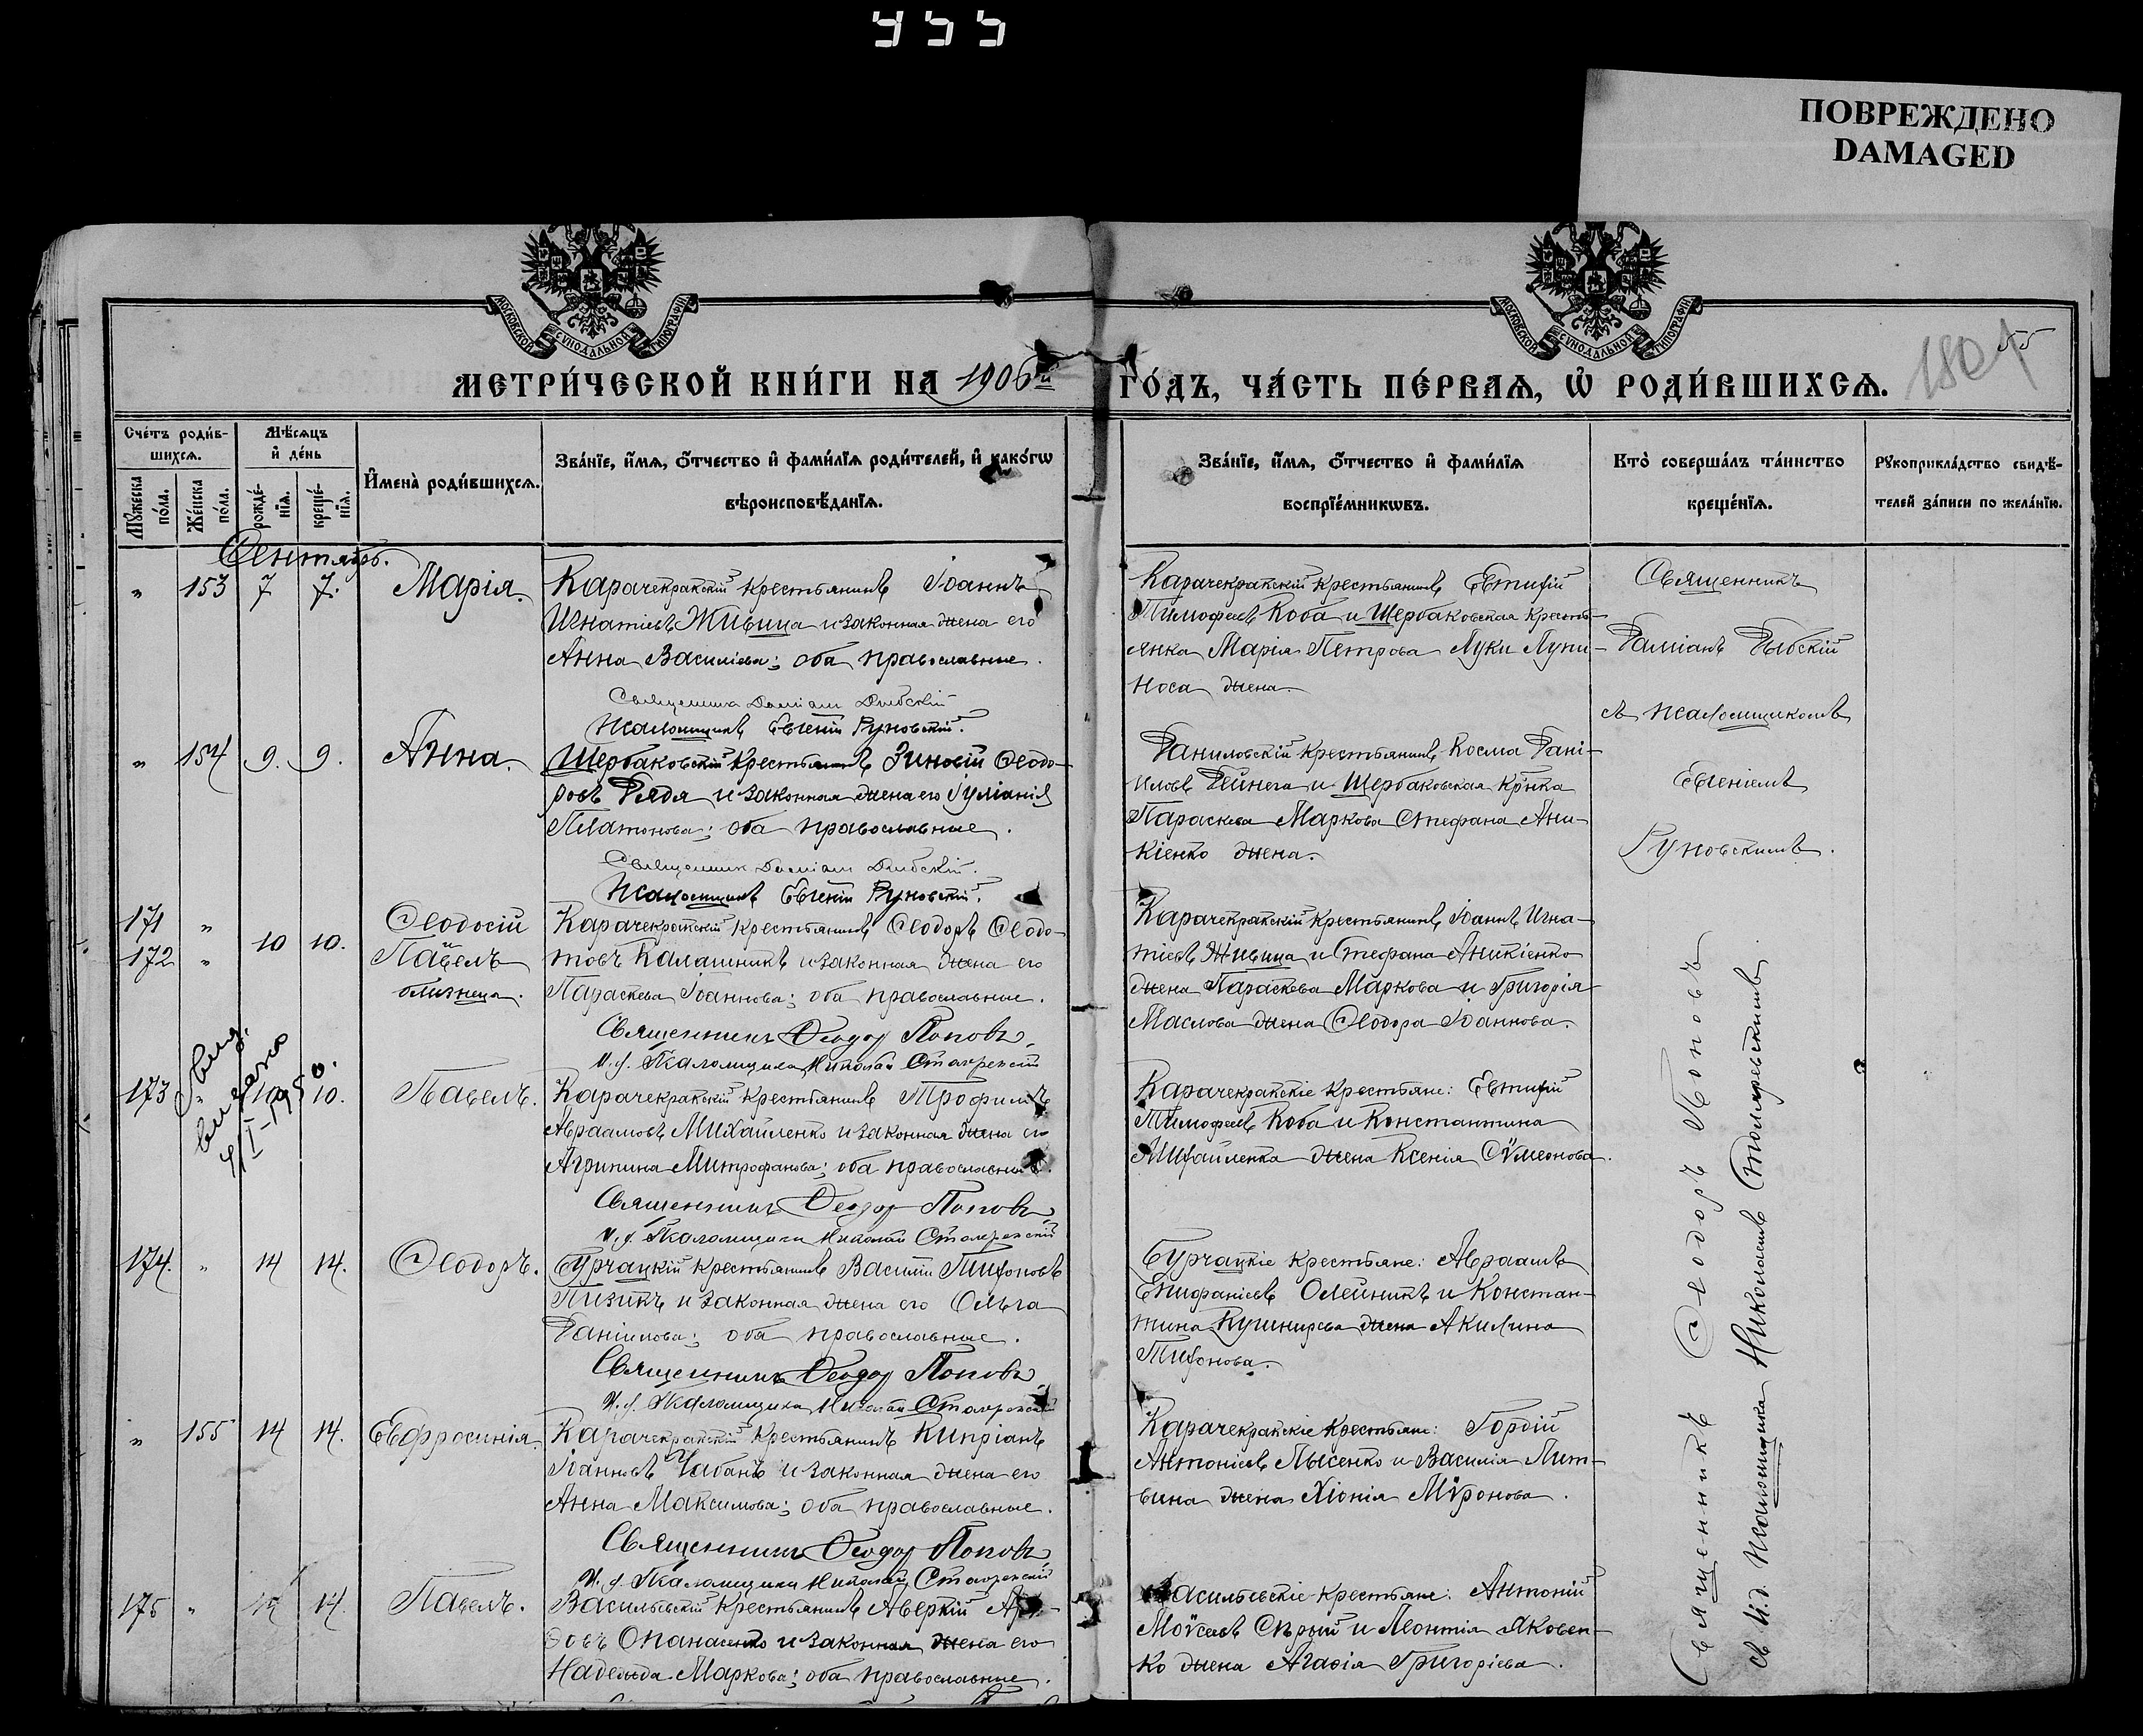 955
ПОВРЕЖДЕНО
DAMAGED
МОСКОВСКОЙ СѴНОДАЛЬНОЙ ТИПОГРАФІИ
МОСКОВСКОЙ СѴНОДАЛЬНОЙ ТИПОГРАФІИ
55
180
МЕТРИ́ЧЕСКОЙ КНИ́ГИ НА 1906й
ГО́ДЪ, ЧА́СТЬ ПЕ́РВАѦ, Ѡ҆ РОДИ́ВШИХСѦ.
Сче́тъ роди́в-
шихсѧ.
Мѣ́сѧцъ
и҆ де́нь
Мꙋ́жеска
по́ла.
Же́нска
по́ла.
рожде́-
нїѧ.
креще́-
нїѧ.
И҆мена̀ роди́вшихсѧ.
Зва́нїе, и҆́мѧ, ѻ҆́тчество и҆ фами́лїѧ роди́телей, и҆ како́гѡ
вѣроисповѣ́данїѧ.
Зва́нїе, и҆́мѧ, ѻ҆́тчество и҆ фами́лїѧ
воспрїе́мникѡвъ.
Кто̀ соверша́лъ та́инство
креще́нїѧ.
Рꙋкоприкла́дство свидѣ́-
телей за́писи по жела́нїю.
Сентябрь.
„ 153 7 7. Марія.
Карачекракскій крестьянинъ Іоаннъ
Игнатіевъ Живица и законная жена его
Анна Василіева; оба православные.
Священникъ Даміанъ Дыбскій
Псаломщикъ Евгеній Руновскій.
Карачекракскій крестьянинъ Евтихій
Тимофеевъ Коба и Щербаковская кресть-
янка Марія Петрова Луки Луни-
носа жена.
Священникъ
Даміанъ Дыбскій
съ псаломщикомъ
Евгеніемъ
Руновскимъ.
„ 154 9. 9. Анна.
Щербаковскій крестьянинъ Зиновій Ѳеодо-
ровъ Дядя и законная жена его Іуліанія
Платонова; оба православные.
Священникъ Даміанъ Дыбскій.
Псаломщикъ Евгеній Руновскій.
Даниловскій крестьянинъ Косма Дані-
иловъ Дейнега и Щербаковская кр-нка
Параскева Маркова Стефана Ани-
кіенко жена.
171 „
172 „
10 10.
Ѳеодосій
и
Павелъ
близнецы.
Карачекракскій крестьянинъ Ѳеодоръ Ѳеодо-
товъ Калашникъ и законная жена его
Параскева Іоаннова; оба православные.
Священникъ Ѳеодоръ Поповъ
И. д. Псаломщика Николай
Карачекракскій крестьянинъ Іоаннъ Игна-
тіевъ Живица и Стефана Аникіенко
жена Параскева Маркова и Григорія
Маслова жена Ѳеодора Іоаннова.
173 „ 10 10. Павелъ.
выдано
Карачекракскій крестьянинъ Трофимъ
Авраамовъ Михайленко и законная жена его
Агрипина Митрофанова; оба православные.
Священникъ Ѳеодоръ Поповъ
И. д. Псаломщика Николай
Карачекракскіе крестьяне: Евтихій
Тимофеевъ Коба и Константина
Михайленка жена Ксенія Сѵмеонова.
174. „ 14 14. Ѳеодоръ.
Бурчацкій крестьянинъ Василій Тихоновъ
Пизикъ и законная жена его Ольга
Даніилова; оба православные.
Священникъ Ѳеодоръ Поповъ
И. д. Псаломщика Николай
Бурчацкіе крестьяне: Авраамъ
Епифаніевъ Олейникъ и Констан-
тина Кушнирева жена Акилина
Тихонова.
„ 155 14 14. Евфросинія.
Карачекракскій крестьянинъ Кипріанъ
Іоанновъ Чабанъ и законная жена его
Анна Максимова; оба православные.
Священникъ Ѳеодоръ Поповъ
И. д. Псаломщика Николай
Карачекракскіе крестьяне: Гордій
Антоніевъ Лысенко и Василія Лит-
вина жена Хіонія Мѵронова.
175 „ 14 14. Павелъ.
Васильевскій крестьянинъ Аверкій
довъ Опанасенко и законная жена его
Надежда Маркова; оба православные.
Васильевскіе крестьяне: Антоній
Моѵсеевъ Сѣрый и Леонтія Яковен-
ко жена Агафія Григоріева.
Священникъ Ѳеодоръ Поповъ
съ и. д. псаломщика Николаемъ